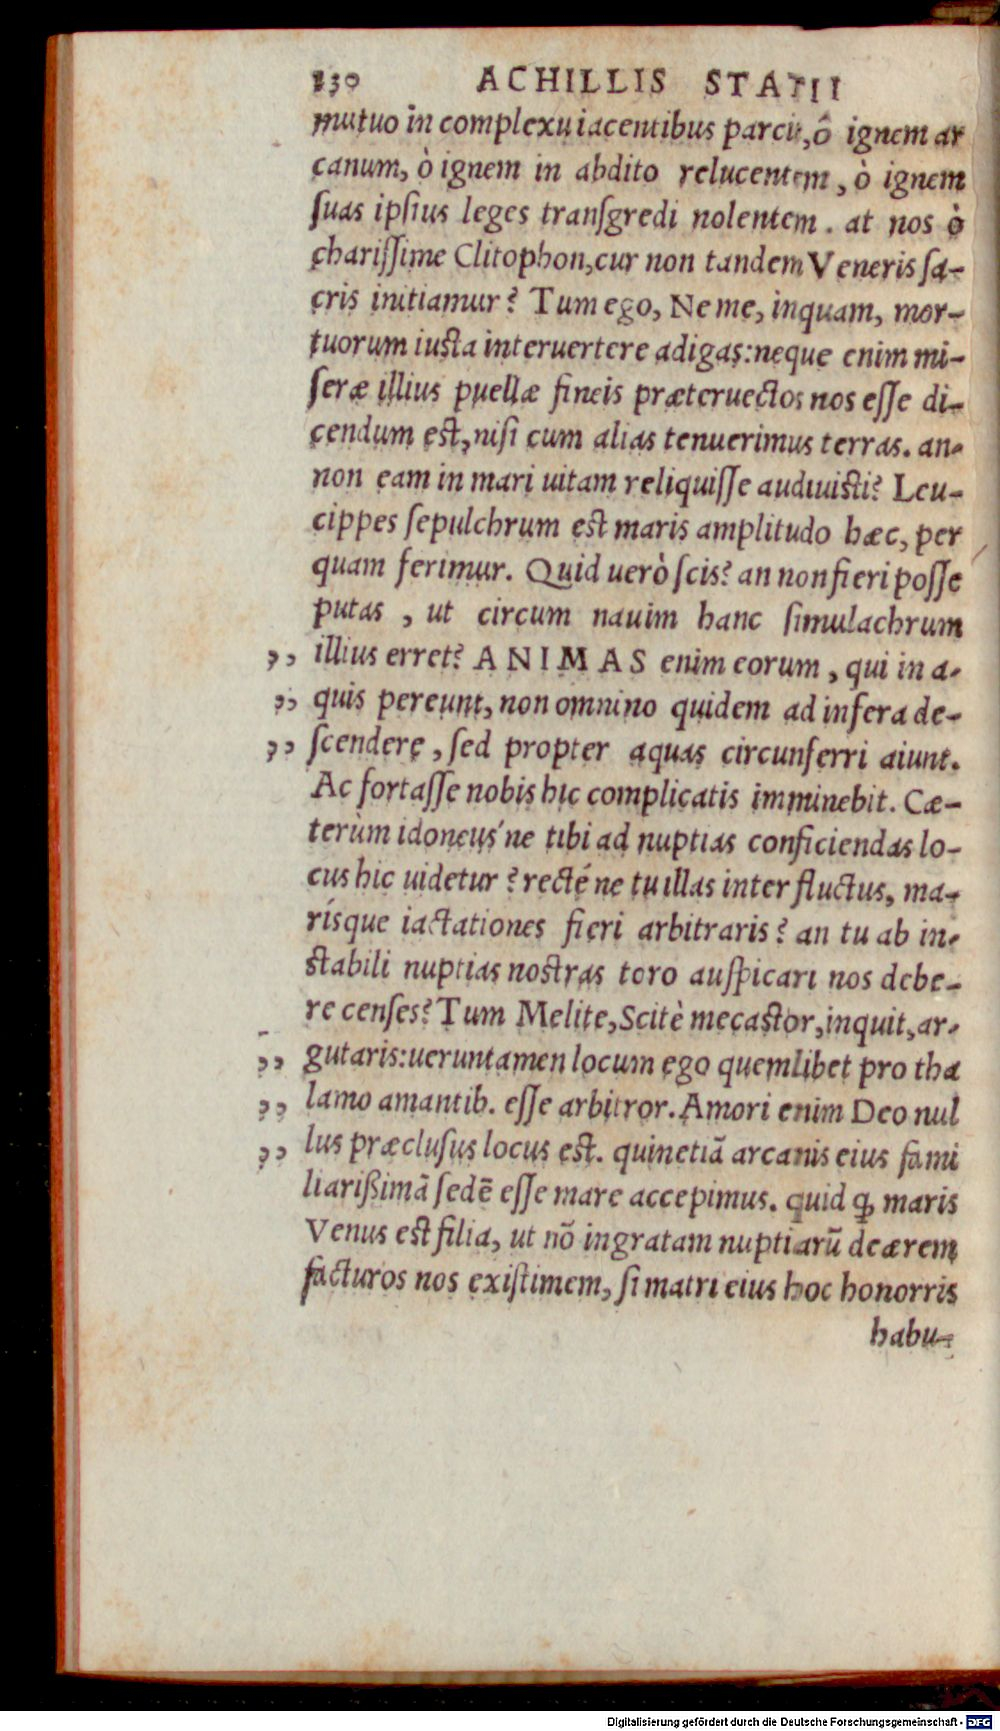 230 ACHILLIS STATII
mutuo in complexu iacentibus parcit, ô ignem ar
canum, ò ignem in abdito relucentem, ò ignem
ſuas ipſius leges tranſgredi nolentem. at nos ò
chariſſime Clitophon, cur non tandem Veneris ſa-
cris initiamur? Tum ego, Ne me, inquam, mor-
tuorum iusta interuertere adigas: neque enim mi-
ſeræ illius puellæ fineis præteruectos nos eſſe di-
cendum est, niſi cum alias tenuerimus terras. an-
non eam in mari uitam reliquiſſe audiuisti? Leu-
cippes ſepulchrum est maris amplitudo hæc, per
quam ferimur. Quid uerò ſcis? an non fieri poſſe
putas, ut circum nauim hanc ſimulachrum
,, illius erret? ANIMAS enim eorum, qui in a-
,, quis pereunt, non omnino quidem ad infera de-
,, ſcendere, ſed propter aquas circunferri aiunt.
Ac fortaſſe nobis hic complicatis imminebit. Cæ-
terùm idoneus'ne tibi ad nuptias conficiendas lo-
cus hic uidetur? recté ne tu illas inter fluctus, ma-
rísque iactationes fieri arbitraris? an tu ab in-
stabili nuptias nostras toro auſpicari nos debe-
re cenſes? Tum Melite, Scitè mecastor, inquit, ar-
,, gutaris: ueruntamen locum ego quemlibet pro tha
,, lamo amantib. eſſe arbitror. Amori enim Deo nul
,, lus præcluſus locus est. quinetiã arcanis eius fami
liarißimã ſedẽ eſſe mare accepimus. quid ꝙ maris
Venus est filia, ut nõ ingratam nuptiarũ deæ rem
facturos nos exiſtimem, ſi matri eius hoc honorris
habu-
Digitalisierung gefördert durch die Deutsche Forschungsgemeinschaft - DFG